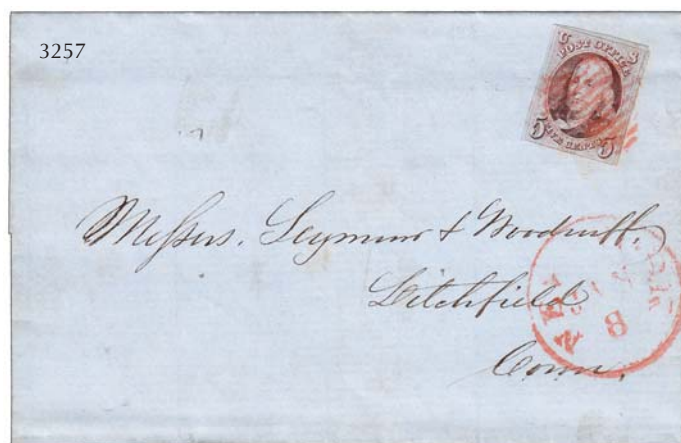 3257
U S
POST OFFICE
5 FIVE CENTS 5
Messrs. Seymour & Woodruff,
Litchfield
Conn.
NEW YORK
8